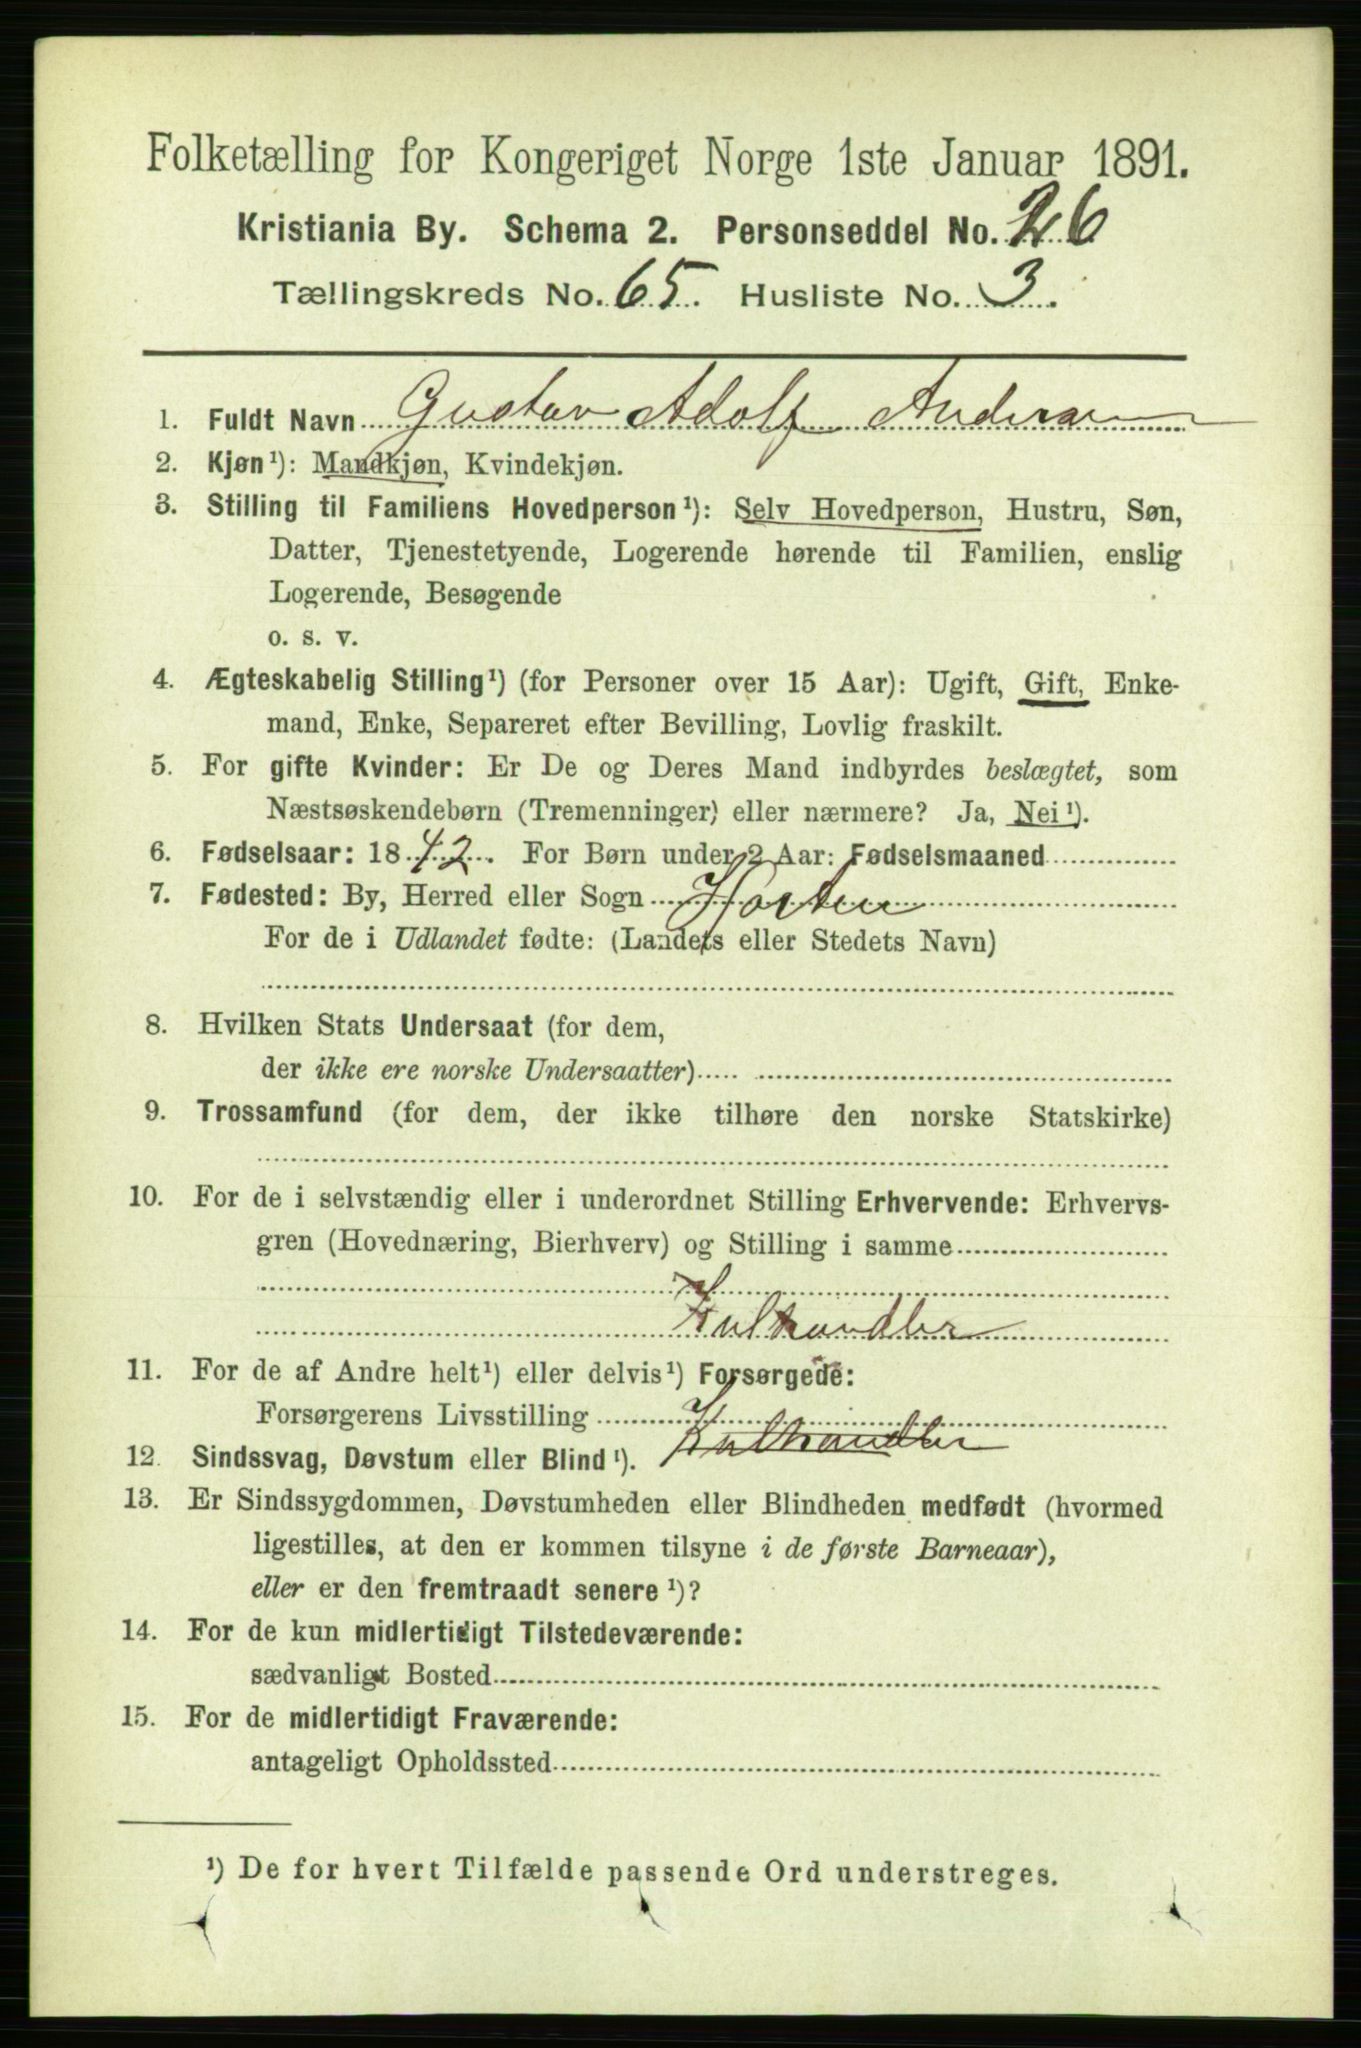 Folketælling for Kongeriget Norge 1ste Januar 1891.
Kristiania By. Schema 2. Personseddel No. 26
Tællingskreds No. 65. Husliste No. 3.
1. Fuldt Navn Gustav Adolf Andersen
2. Kjøn¹): Mandkjøn, Kvindekjøn.
3. Stilling til Familiens Hovedperson¹): Selv Hovedperson, Hustru, Søn,
Datter, Tjenestetyende, Logerende hørende til Familien, enslig
Logerende, Besøgende
o. s. v.
4. Ægteskabelig Stilling¹) (for Personer over 15 Aar): Ugift, Gift, Enke-
mand, Enke, Separeret efter Bevilling, Lovlig fraskilt.
5. For gifte Kvinder: Er De og Deres Mand indbyrdes beslægtet, som
Næstsøskendebørn (Tremenninger) eller nærmere? Ja, Nei¹).
6. Fødselsaar: 1842. For Børn under 2 Aar: Fødselsmaaned
7. Fødested: By, Herred eller Sogn Horten
For de i Udlandet fødte: (Landets eller Stedets Navn)
8. Hvilken Stats Undersaat (for dem,
der ikke ere norske Undersaatter)
9. Trossamfund (for dem, der ikke tilhøre den norske Statskirke)
10. For de i selvstændig eller i underordnet Stilling Erhvervende: Erhvervs-
gren (Hovednæring, Bierhverv) og Stilling i samme
Kulhandler
11. For de af Andre helt¹) eller delvis¹) Forsørgede:
Forsørgerens Livsstilling Kulhandler
12. Sindssvag, Døvstum eller Blind¹).
13. Er Sindssygdommen, Døvstumheden eller Blindheden medfødt (hvormed
ligestilles, at den er kommen tilsyne i de første Barneaar),
eller er den fremtraadt senere¹)?
14. For de kun midlertidigt Tilstedeværende:
sædvanligt Bosted
15. For de midlertidigt Fraværende:
antageligt Opholdssted
¹) De for hvert Tilfælde passende Ord understreges.